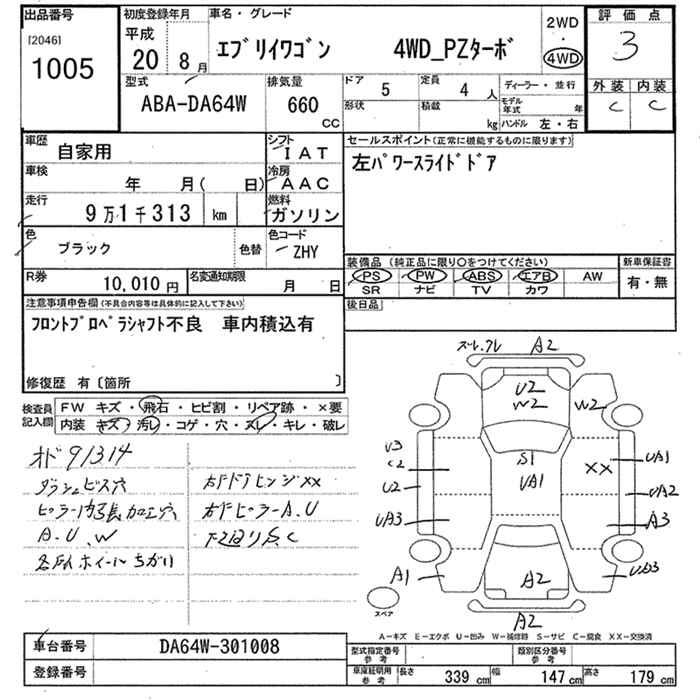 出品番号
[2046]
1005
初度登録年月
平成
20 8月
車名・グレード
エブリイワゴン 4WD_PZターボ
2WD
・
4WD
評価点
3
外装 内装
C C
型式
ABA-DA64W
排気量
660
CC
ドア
5
形状
定員
4 人
積載
kg
ディーラー・並行
モデル年式 年
ハンドル 左・右
車歴
自家用
シフト
IAT
車検
年 月( 日)
冷房
AAC
走行
9万1千313 km
燃料
ガソリン
色
ブラック
色替
色コード
ZHY
R券
10,010円
名変通知期限
月 日
セールスポイント(正常に機能するものに限ります)
左パワースライドドア
装備品(純正品に限り○をつけてください)
PS PW ABS エアB AW
SR ナビ TV カワ
新車保証書
有・無
後日品
注意事項申告欄(不具合内容等は具体的に記入して下さい)
フロントプロペラシャフト不良 車内積込有
修復歴 有〔箇所 〕
検査員記入欄
FW キズ・飛石・ヒビ割・リペア跡・×要
内装 キズ・汚レ・コゲ・穴・スレ・キレ・破レ
オド91314
ダッシュビス穴
ピラー内張加工穴
A.U.W
各所ホイールちがい
右Fドアヒンジxx
右FピラーA.U
下廻りS.C
A2
U2
W2
W2
S1
UA1
XX
U3
C2
U2
UA3
A1
UA1
UA2
A3
UA3
A2
A2
スペア
A－キズ E－エクボ U－凹み W－補修跡 S－サビ C－腐食 XX－交換済
車台番号
DA64W-301008
登録番号
型式指定番号
参考
類別区分番号
参考
車庫証明用
参考
長さ 339 cm
幅 147 cm
高さ 179 cm